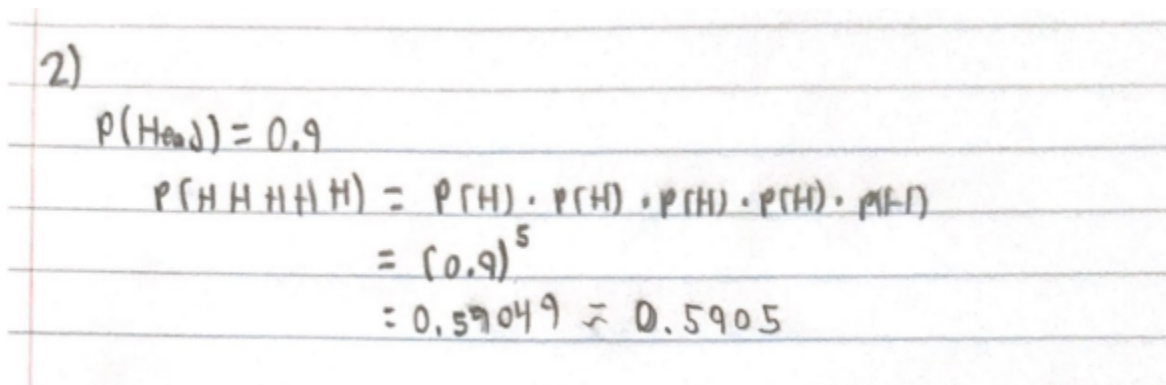 2)
P(Head) = 0.9
P(HHHHH) = P(H) · P(H) · P(H) · P(H) · P(H)
= (0.9)⁵
= 0.59049 ≈ 0.5905